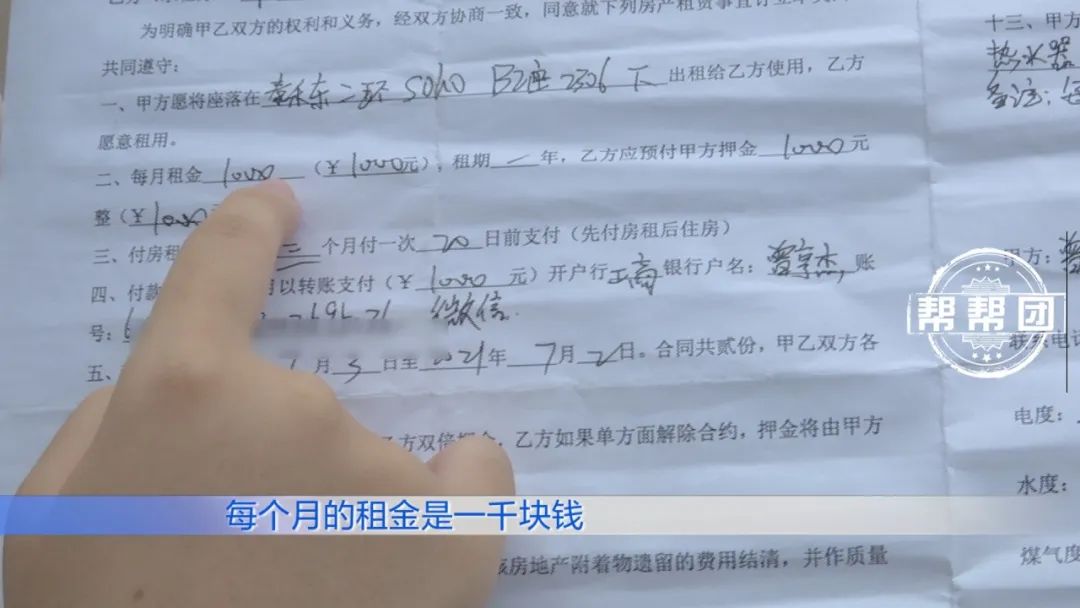 为明确甲乙双方的权利和义务，经双方协商一致，同意就下列房产租赁事宜订立本
共同遵守：
一、甲方愿将座落在 东二环 SOHO B2座2306下 出租给乙方使用，乙方
愿意租用。
二、每月租金 1000 （￥1000元），租期一年，乙方应预付甲方押金 1000 元
整（￥1000
三、付房租 三 个月付一次 20 日前支付（先付房租后住房）
四、付款 以转账支付（￥1000 元）开户行工商银行户名： 账
号： 微信.
五、 月 3 日至 2021年 7月 2日。合同共贰份，甲乙双方各
方双倍押金，乙方如果单方面解除合约，押金将由甲方
房地产附着物遗留的费用结清，并作质量
十三、甲方
热水器
备注：
甲方：
联系电话
电度：
水度：
煤气度
帮帮团
每个月的租金是一千块钱